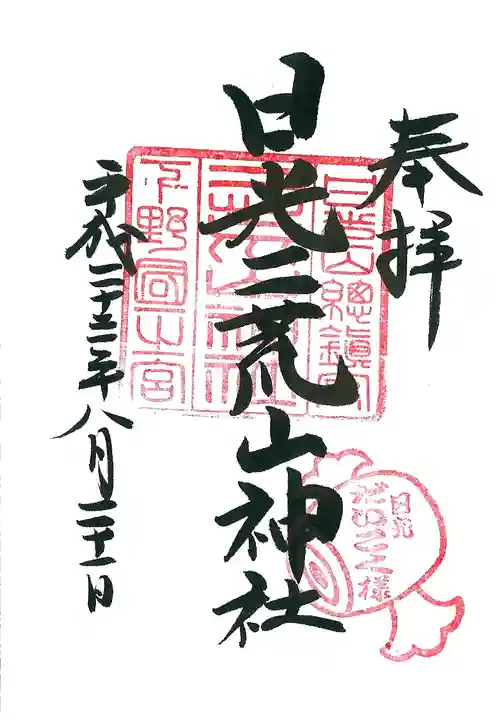 奉拝
日光山總鎮守
日光二荒山神社
二荒山神社
下野國一之宮
平成二十二年八月二十一日
日光
だいこく様